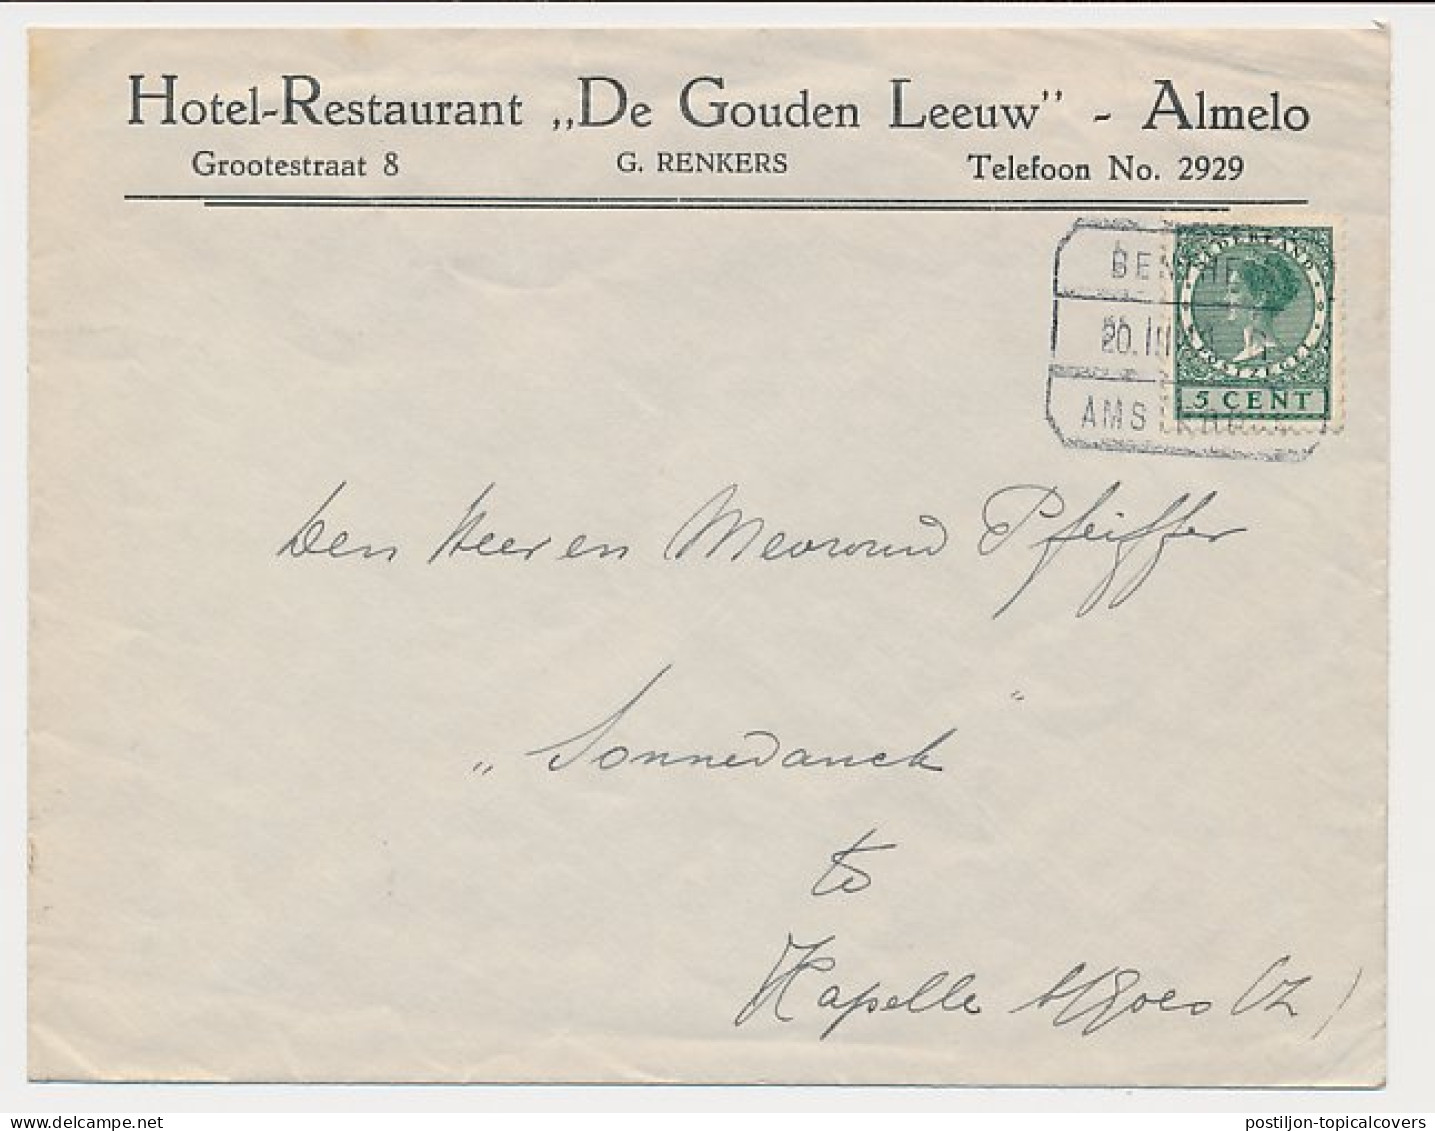 Hotel-Restaurant „De Gouden Leeuw” - Almelo
Grootestraat 8 G. RENKERS Telefoon No. 2929
NEDERLAND
POSTZEGEL
5 CENT
20.III
AMS
Den Heer en Mevrouw Pfeiffer
„Sonnedanck”
te
Kapelle b/Goes (Z)
delcampe.net
postiljon-topicalcovers